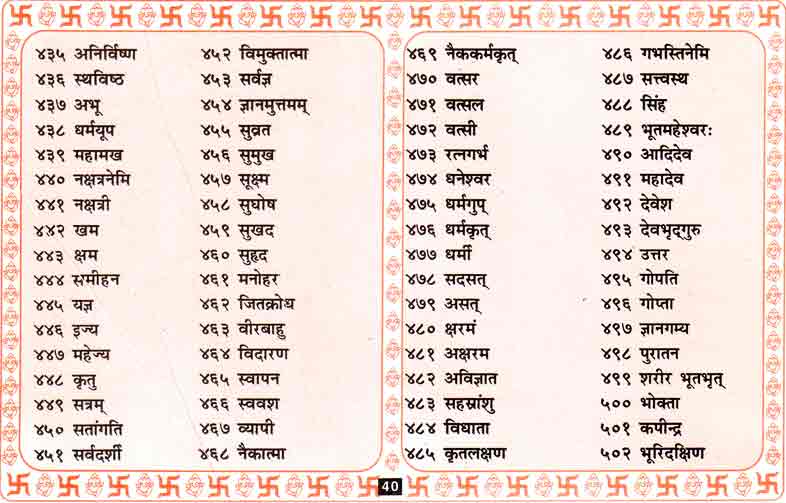 ४३५ अनिर्विष्ण
४३६ स्थविष्ठ
४३७ अभू
४३८ धर्मयूप
४३९ महामख
४४० नक्षत्रनेमि
४४१ नक्षत्री
४४२ खम
४४३ क्षम
४४४ समीहन
४४५ यज्ञ
४४६ इज्य
४४७ महेज्य
४४८ कृतु
४४९ सत्रम्
४५० सतांगति
४५१ सर्वदर्शी
४५२ विमुक्तात्मा
४५३ सर्वज्ञ
४५४ ज्ञानमुत्तमम्
४५५ सुव्रत
४५६ सुमुख
४५७ सूक्ष्म
४५८ सुघोष
४५९ सुखद
४६० सुहृद
४६१ मनोहर
४६२ जितक्रोध
४६३ वीरबाहु
४६४ विदारण
४६५ स्वापन
४६६ स्ववश
४६७ व्यापी
४६८ नैकात्मा
४६९ नैककर्मकृत्
४७० वत्सर
४७१ वत्सल
४७२ वत्सी
४७३ रत्नगर्भ
४७४ धनेश्वर
४७५ धर्मगुप्
४७६ धर्मकृत्
४७७ धर्मी
४७८ सदसत्
४७९ असत्
४८० क्षरमं
४८१ अक्षरम
४८२ अविज्ञात
४८३ सहस्रांशु
४८४ विधाता
४८५ कृतलक्षण
४८६ गभस्तिनेमि
४८७ सत्त्वस्थ
४८८ सिंह
४८९ भूतमहेश्वरः
४९० आदिदेव
४९१ महादेव
४९२ देवेश
४९३ देवभृद्गुरु
४९४ उत्तर
४९५ गोपति
४९६ गोप्ता
४९७ ज्ञानगम्य
४९८ पुरातन
४९९ शरीर भूतभृत्
५०० भोक्ता
५०१ कपीन्द्र
५०२ भूरिदक्षिण
40